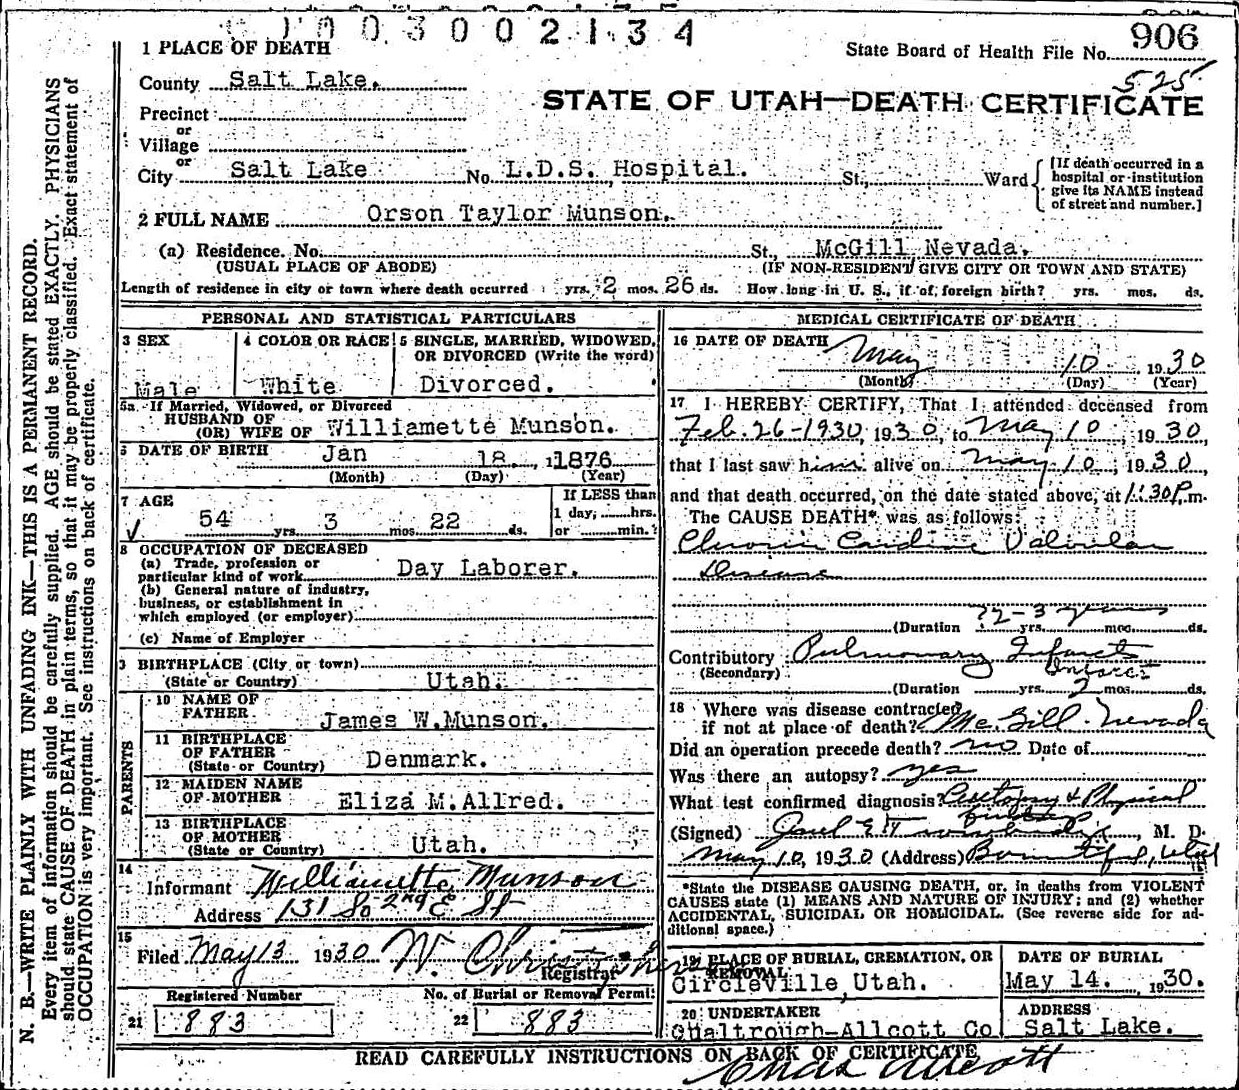 1003002134
1 PLACE OF DEATH
State Board of Health File No. 906
525
County Salt Lake.
STATE OF UTAH—DEATH CERTIFICATE
Precinct
or
Village
or
City Salt Lake No. L.D.S. Hospital. St., Ward
[If death occurred in a hospital or institution give its NAME instead of street and number.]
2 FULL NAME Orson Taylor Munson.
(a) Residence. No. St., McGill Nevada.
(USUAL PLACE OF ABODE) (IF NON-RESIDENT GIVE CITY OR TOWN AND STATE)
Length of residence in city or town where death occurred yrs. 2 mos. 26 ds. How long in U. S., if of foreign birth? yrs. mos. ds.
N. B.—WRITE PLAINLY WITH UNFADING INK—THIS IS A PERMANENT RECORD.
Every item of information should be carefully supplied. AGE should be stated EXACTLY. PHYSICIANS
should state CAUSE OF DEATH in plain terms, so that it may be properly classified. Exact statement of
OCCUPATION is very important. See instructions on back of certificate.
PERSONAL AND STATISTICAL PARTICULARS
3 SEX
Male
4 COLOR OR RACE
White
5 SINGLE, MARRIED, WIDOWED,
OR DIVORCED (Write the word)
Divorced.
5a If Married, Widowed, or Divorced
HUSBAND OF
(OR) WIFE OF Williamette Munson.
6 DATE OF BIRTH Jan 18, 1876
(Month) (Day) (Year)
7 AGE
54 yrs. 3 mos. 22 ds.
If LESS than
1 day, hrs.
or min.?
8 OCCUPATION OF DECEASED
(a) Trade, profession or
particular kind of work Day Laborer.
(b) General nature of industry,
business, or establishment in
which employed (or employer)
(c) Name of Employer
9 BIRTHPLACE (City or town)
(State or Country) Utah.
PARENTS
10 NAME OF
FATHER James W.Munson.
11 BIRTHPLACE
OF FATHER Denmark.
(State or Country)
12 MAIDEN NAME
OF MOTHER Eliza M.Allred.
13 BIRTHPLACE
OF MOTHER
(State or Country) Utah.
14
Informant Williamette Munson
Address 131 So 2nd E St
15
Filed May 13 1930 W. Christopherson
Registrar
Registered Number
21 883
No. of Burial or Removal Permit
22 883
MEDICAL CERTIFICATE OF DEATH
16 DATE OF DEATH
May 10 1930
(Month) (Day) (Year)
17 I HEREBY CERTIFY, That I attended deceased from
Feb. 26-1930, 1930, to May 10, 1930,
that I last saw him alive on May 10, 1930,
and that death occurred, on the date stated above, at 1:30 P.m.
The CAUSE DEATH* was as follows:
Chronic Cardiac Valvular
Disease
?2-3 years
(Duration yrs. mos. ds.
Contributory Pulmonary Infarct
(Secondary)
(Duration yrs. 2 mos. ds.
18 Where was disease contracted
if not at place of death? Mc.Gill. Nevada
Did an operation precede death? no Date of
Was there an autopsy? yes
What test confirmed diagnosis? Autopsy & Physical
(Signed) , M. D.
May 10, 1930 (Address) Bountiful, Utah
*State the DISEASE CAUSING DEATH, or, in deaths from VIOLENT
CAUSES state (1) MEANS AND NATURE OF INJURY; and (2) whether
ACCIDENTAL, SUICIDAL OR HOMICIDAL. (See reverse side for ad-
ditional space.)
19 PLACE OF BURIAL, CREMATION, OR
REMOVAL
Circleville, Utah.
DATE OF BURIAL
May 14. 1930.
20 UNDERTAKER
Qualtrough-Allcott Co
ADDRESS
Salt Lake.
READ CAREFULLY INSTRUCTIONS ON BACK OF CERTIFICATE
Chas Allcott